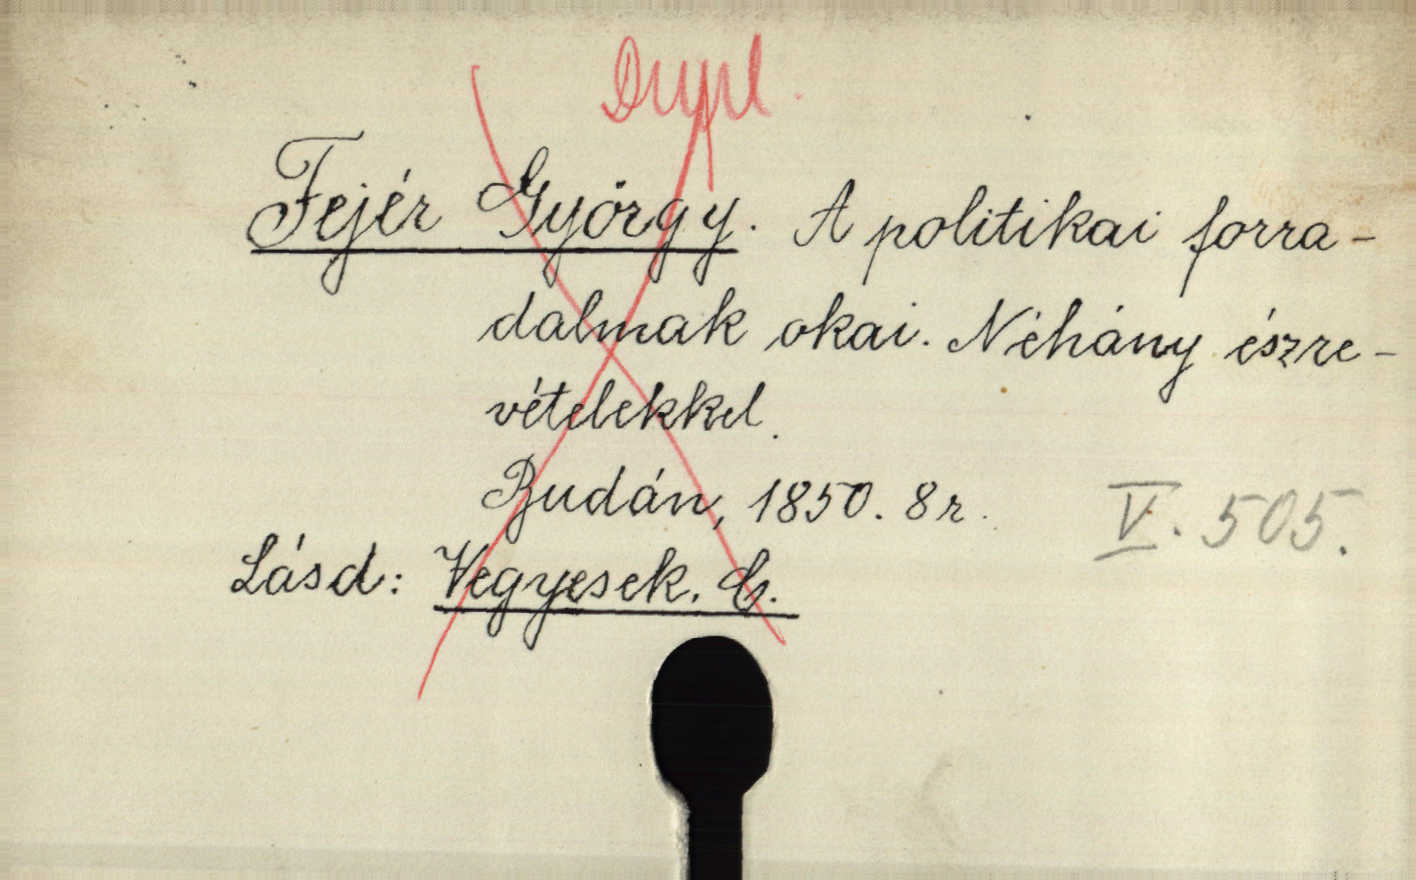 Dupl.
Fejér György. A politikai forra-
dalmak okai. Néhány észre-
vételekkel.
Budán, 1850. 8r.
V. 505.
Lásd: Vegyesek. C.